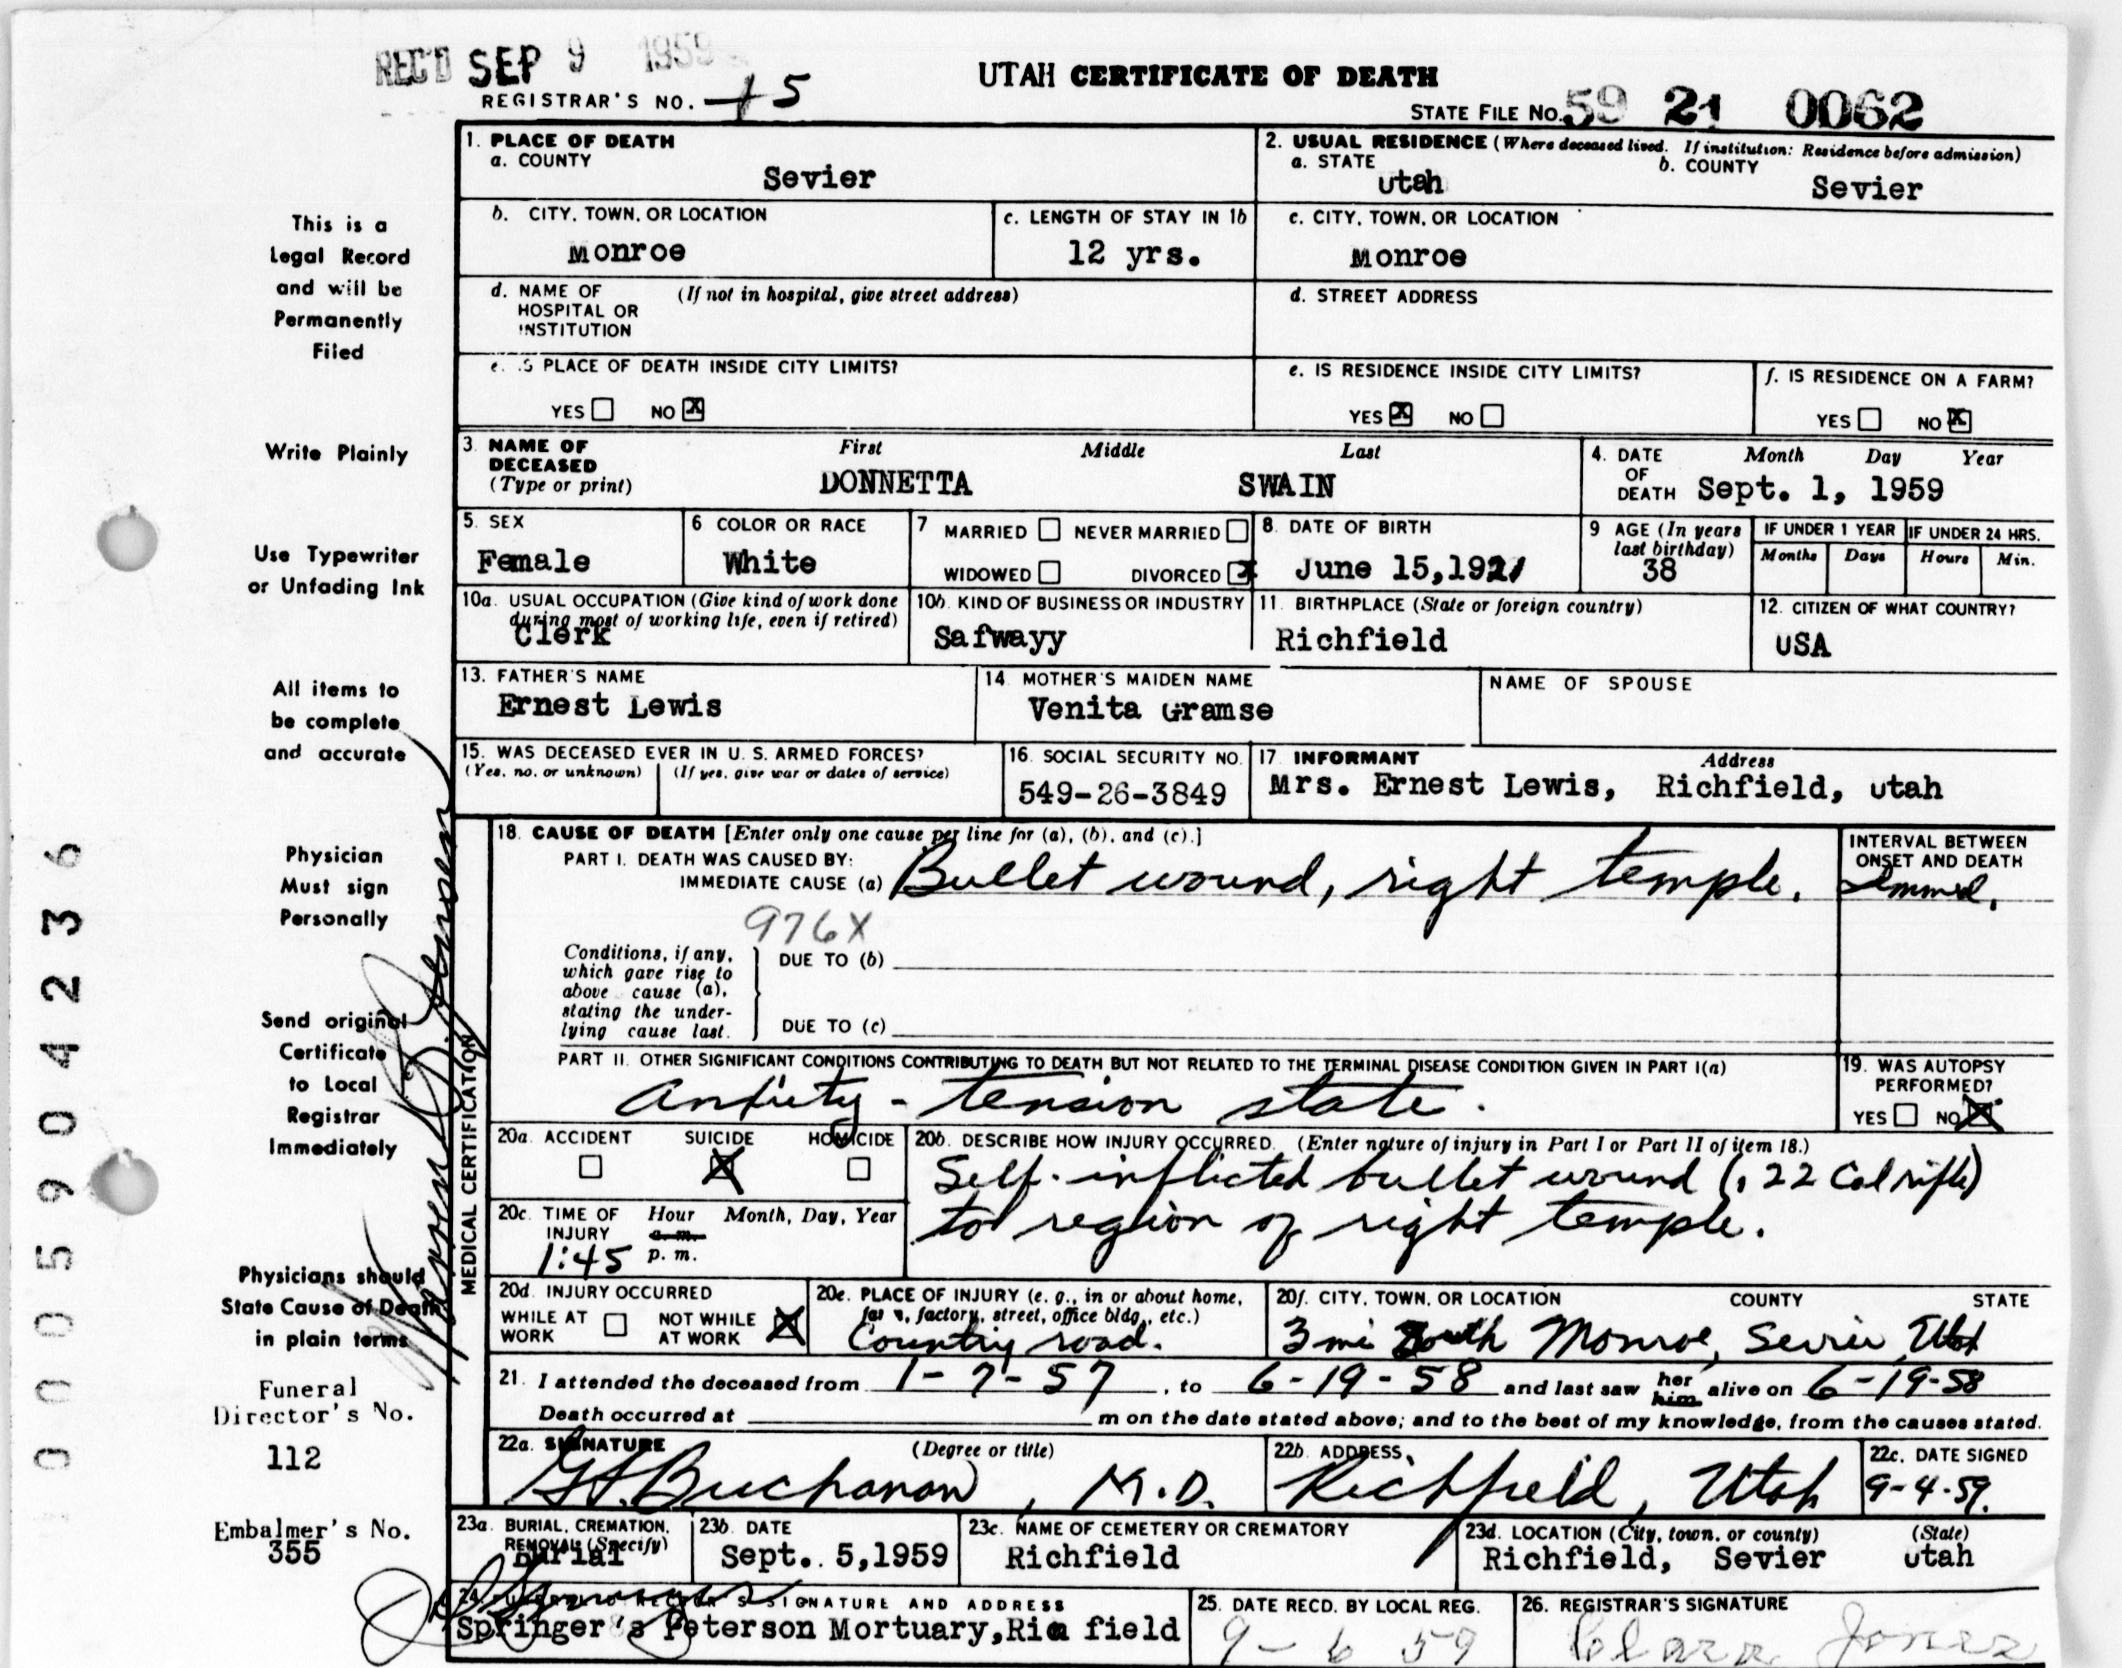 REC'D SEP 9 1959
REGISTRAR'S NO. 15
UTAH CERTIFICATE OF DEATH
STATE FILE NO. 59 21 0062
This is a
Legal Record
and will be
Permanently
Filed
Write Plainly
Use Typewriter
or Unfading Ink
All items to
be complete
and accurate
Physician
Must sign
Personally
Send original
Certificate
to Local
Registrar
Immediately
Physicians should
State Cause of Death
in plain terms
Funeral
Director's No.
112
Embalmer's No.
355
0005904236
1. PLACE OF DEATH
a. COUNTY
Sevier
2. USUAL RESIDENCE (Where deceased lived. If institution: Residence before admission)
a. STATE
Utah
b. COUNTY
Sevier
b. CITY, TOWN, OR LOCATION
Monroe
c. LENGTH OF STAY IN 1b
12 yrs.
c. CITY, TOWN, OR LOCATION
Monroe
d. NAME OF HOSPITAL OR INSTITUTION
(If not in hospital, give street address)
d. STREET ADDRESS
e. IS PLACE OF DEATH INSIDE CITY LIMITS?
YES NO X
e. IS RESIDENCE INSIDE CITY LIMITS?
YES X NO
f. IS RESIDENCE ON A FARM?
YES NO X
3. NAME OF DECEASED (Type or print)
First Middle Last
DONNETTA SWAIN
4. DATE OF DEATH
Month Day Year
Sept. 1, 1959
5. SEX
Female
6 COLOR OR RACE
White
7 MARRIED NEVER MARRIED
WIDOWED DIVORCED X
8. DATE OF BIRTH
June 15,1921
9 AGE (In years last birthday)
38
IF UNDER 1 YEAR
Months Days
IF UNDER 24 HRS.
Hours Min.
10a. USUAL OCCUPATION (Give kind of work done during most of working life, even if retired)
Clerk
10b. KIND OF BUSINESS OR INDUSTRY
Safwayy
11. BIRTHPLACE (State or foreign country)
Richfield
12. CITIZEN OF WHAT COUNTRY?
USA
13. FATHER'S NAME
Ernest Lewis
14 MOTHER'S MAIDEN NAME
Venita Gramse
NAME OF SPOUSE
15. WAS DECEASED EVER IN U. S. ARMED FORCES?
(Yes, no, or unknown) (If yes, give war or dates of service)
16. SOCIAL SECURITY NO.
549-26-3849
17 INFORMANT Address
Mrs. Ernest Lewis, Richfield, Utah
MEDICAL CERTIFICATION
18. CAUSE OF DEATH [Enter only one cause per line for (a), (b), and (c).]
PART I. DEATH WAS CAUSED BY:
IMMEDIATE CAUSE (a) Bullet wound, right temple.
INTERVAL BETWEEN ONSET AND DEATH
Immed.
976X
Conditions, if any, which gave rise to above cause (a), stating the underlying cause last.
DUE TO (b)
DUE TO (c)
PART II. OTHER SIGNIFICANT CONDITIONS CONTRIBUTING TO DEATH BUT NOT RELATED TO THE TERMINAL DISEASE CONDITION GIVEN IN PART I(a)
Anxiety - tension state.
19. WAS AUTOPSY PERFORMED?
YES NO X
20a. ACCIDENT SUICIDE HOMICIDE
X
20b. DESCRIBE HOW INJURY OCCURRED. (Enter nature of injury in Part I or Part II of item 18.)
Self-inflicted bullet wound (.22 Cal rifle)
to region of right temple.
20c. TIME OF INJURY
Hour Month, Day, Year
1:45 a. m. p. m.
20d. INJURY OCCURRED
WHILE AT WORK NOT WHILE AT WORK X
20e. PLACE OF INJURY (e. g., in or about home, farm, factory, street, office bldg., etc.)
Country road.
20f. CITY, TOWN, OR LOCATION COUNTY STATE
3 mi South Monroe, Sevier, Utah
21. I attended the deceased from 1-7-57, to 6-19-58 and last saw her him alive on 6-19-58
Death occurred at m on the date stated above; and to the best of my knowledge, from the causes stated.
22a. SIGNATURE (Degree or title)
Buchanan, M.D.
22b. ADDRESS
Richfield, Utah
22c. DATE SIGNED
9-4-59.
23a. BURIAL, CREMATION, REMOVAL (Specify)
Burial
23b. DATE
Sept. 5,1959
23c. NAME OF CEMETERY OR CREMATORY
Richfield
23d. LOCATION (City, town, or county) (State)
Richfield, Sevier Utah
24. FUNERAL DIRECTOR'S SIGNATURE AND ADDRESS
Springer's Peterson Mortuary, Richfield
25. DATE RECD. BY LOCAL REG.
9-6 59
26. REGISTRAR'S SIGNATURE
Clara Jones